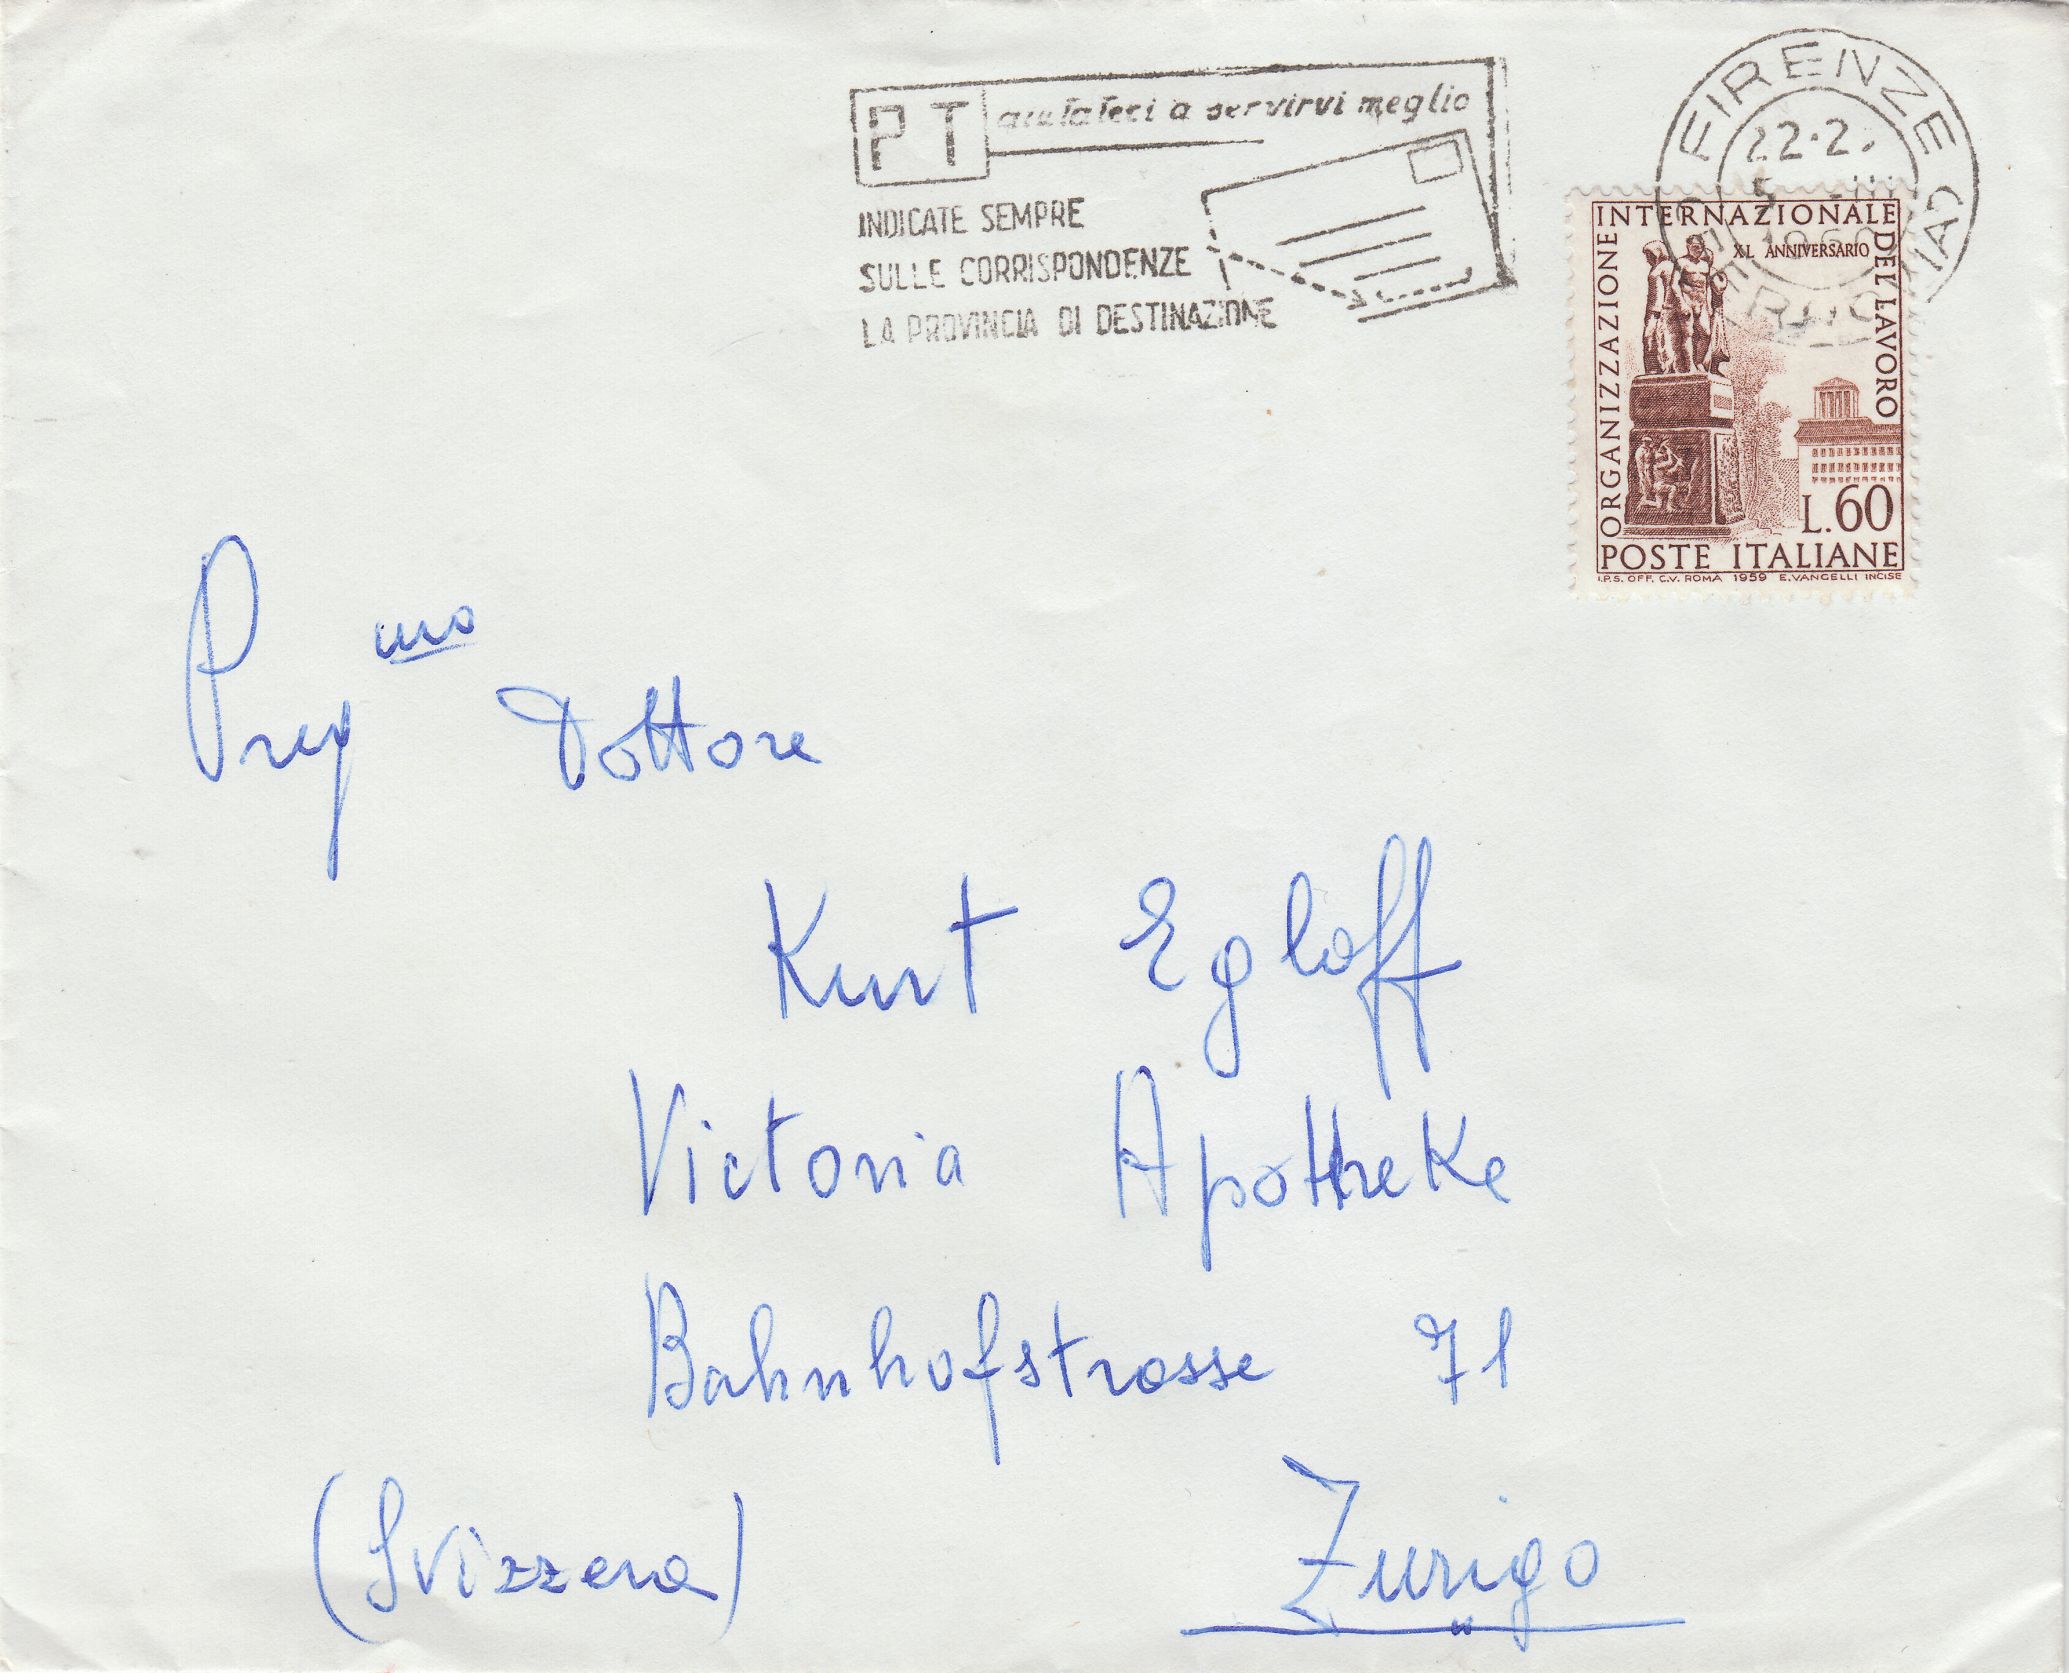 PT aiutateci a servirvi meglio
INDICATE SEMPRE
SULLE CORRISPONDENZE
LA PROVINCIA DI DESTINAZIONE
FIRENZE
22·2.
ORGANIZZAZIONE INTERNAZIONALE DEL LAVORO
XL ANNIVERSARIO
L.60
POSTE ITALIANE
I.P.S. OFF. C.V. ROMA 1959 E. VANGELLI INCISE
Preg mo Dottore
Kurt Egloff
Victoria Apotheke
Bahnhofstrasse 71
(Svizzera) Zurigo